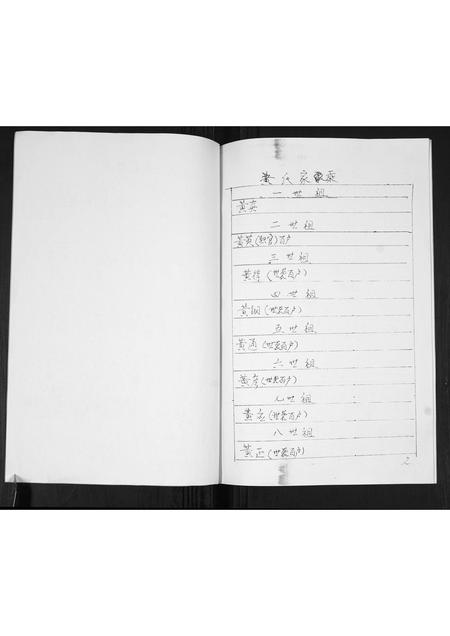 黄氏家
一世祖
黄
二世祖
黄英(  )百户
三世祖
黄 (世袭百户)
四世祖
黄 (世袭百户)
五世祖
黄通(世袭百户)
六世祖
黄彦(世袭百户)
七世祖
黄宏(世袭百户)
八世祖
黄正(世袭百户)
2